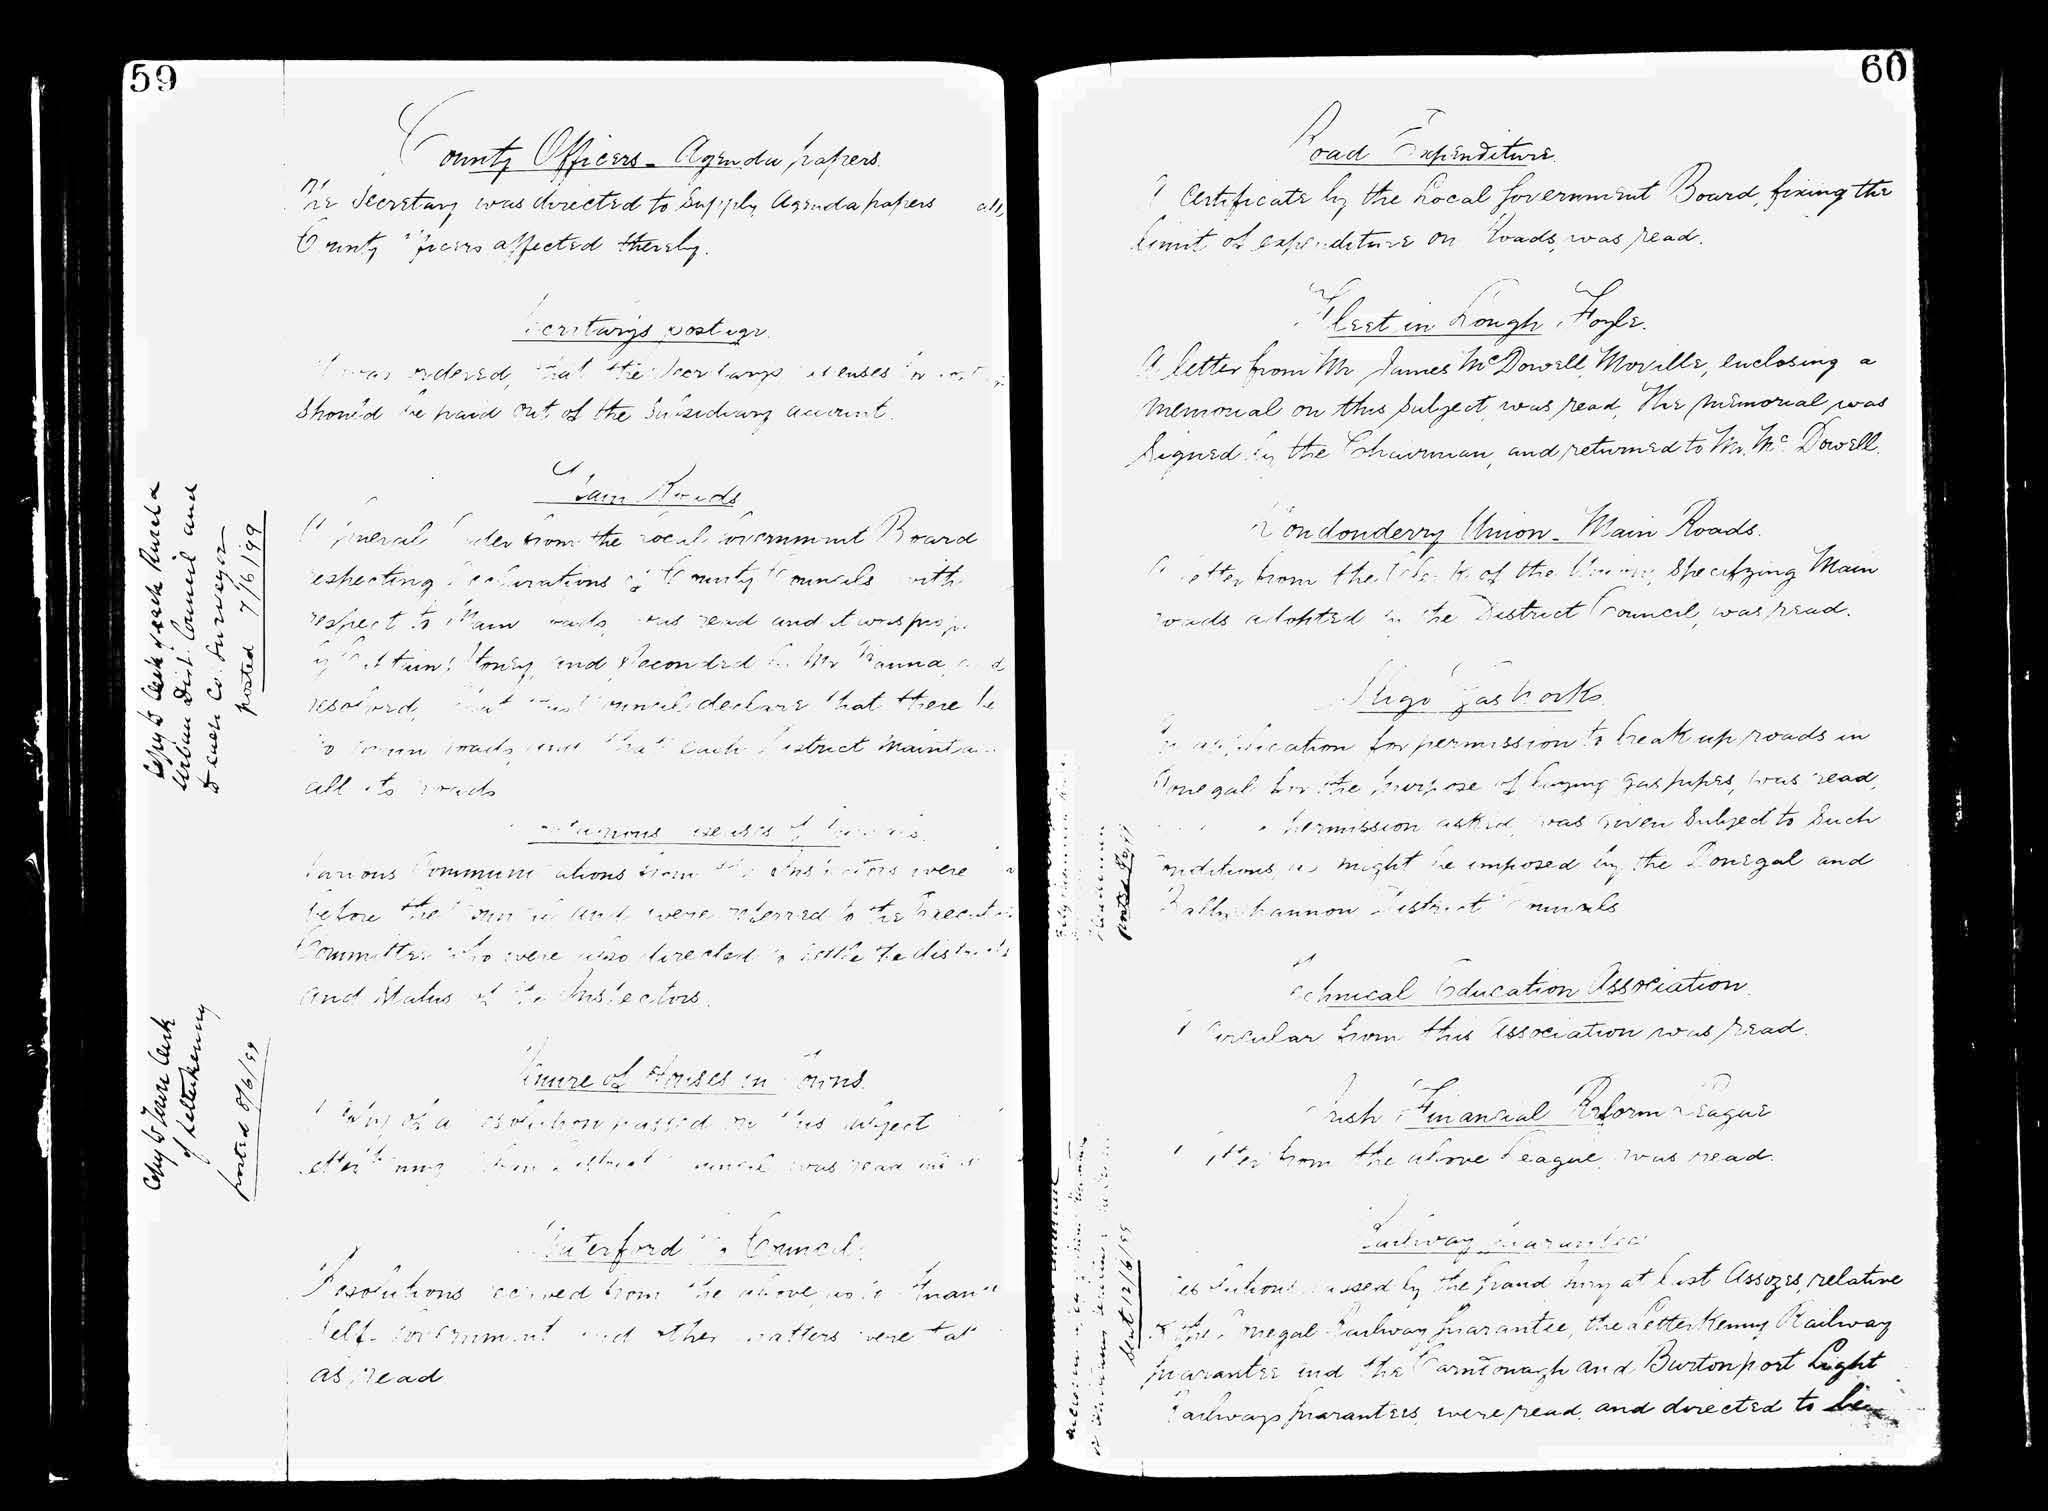 59
County Officers - Agenda papers.
The Secretary was directed to supply Agenda papers all
County Officers affected thereby.
Secretary's postage.
It was ordered, that the Secretary's expenses for postage
should be paid out of the Subsidiary account.
Main Roads
A General Order from the Local Government Board
respecting Declarations of County Councils with
respect to Main roads, was read and it was prop
by Captain Stoney, and seconded by Mr Hanna, and
resolved, that this Council declare that there be
no main roads, and that each District maintain
all its roads
Contagious Diseases of Animals.
Various Communications from the Inspectors were
before the Council and were referred to the Executive
Committee who were also directed to settle the districts
and status of the Inspectors.
Tenure of Houses in Towns.
A Copy of a resolution passed on this subject
Letterkenny Urban District Council was read
Waterford Co. Council.
Resolutions received from the above, as to Finance
Self-Government and other matters were tak
as read
Copy to Clerk of each Rural &
Urban Dist. Council and
to each Co. Surveyor
posted 7/6/99
Copy to Town Clerk
of Letterkenny
posted 8/6/99
60
Road Expenditure.
A Certificate by the Local Government Board, fixing the
limit of expenditure on Roads, was read.
Fleet in Lough Foyle.
A letter from Mr James McDowell, Moville, enclosing a
memorial on this subject, was read, The memorial was
signed by the Chairman, and returned to Mr. McDowell.
Londonderry Union - Main Roads.
A letter from the Clerk of the Union, specifying Main
roads adopted by the District Council, was read.
Sligo Gas Works.
An application for permission to break up roads in
Donegal for the purpose of laying gas pipes, was read,
permission asked, was given subject to such
conditions as might be imposed by the Donegal and
Ballyshannon District Councils
Technical Education Association.
A circular from this Association was read.
Irish Financial Reform League
A letter from the above League, was read.
Railway Guarantee
Resolutions passed by the Grand Jury at last Assizes, relative
to the Donegal Railway Guarantee, the Letterkenny Railway
Guarantee and the Carndonagh and Burtonport Light
Railways Guarantees, were read, and directed to be
posted
sent 12/6/99